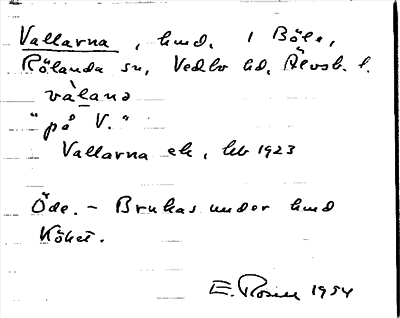 Vallarna, hmd, 1 Böle,
Rölanda sn, Vedbo hd, Älvsb. l.
vàlana
"på V."
Vallarna ek, hb 1923
Öde. - Brukas under hmd
Köket.
E. Rosell 1954